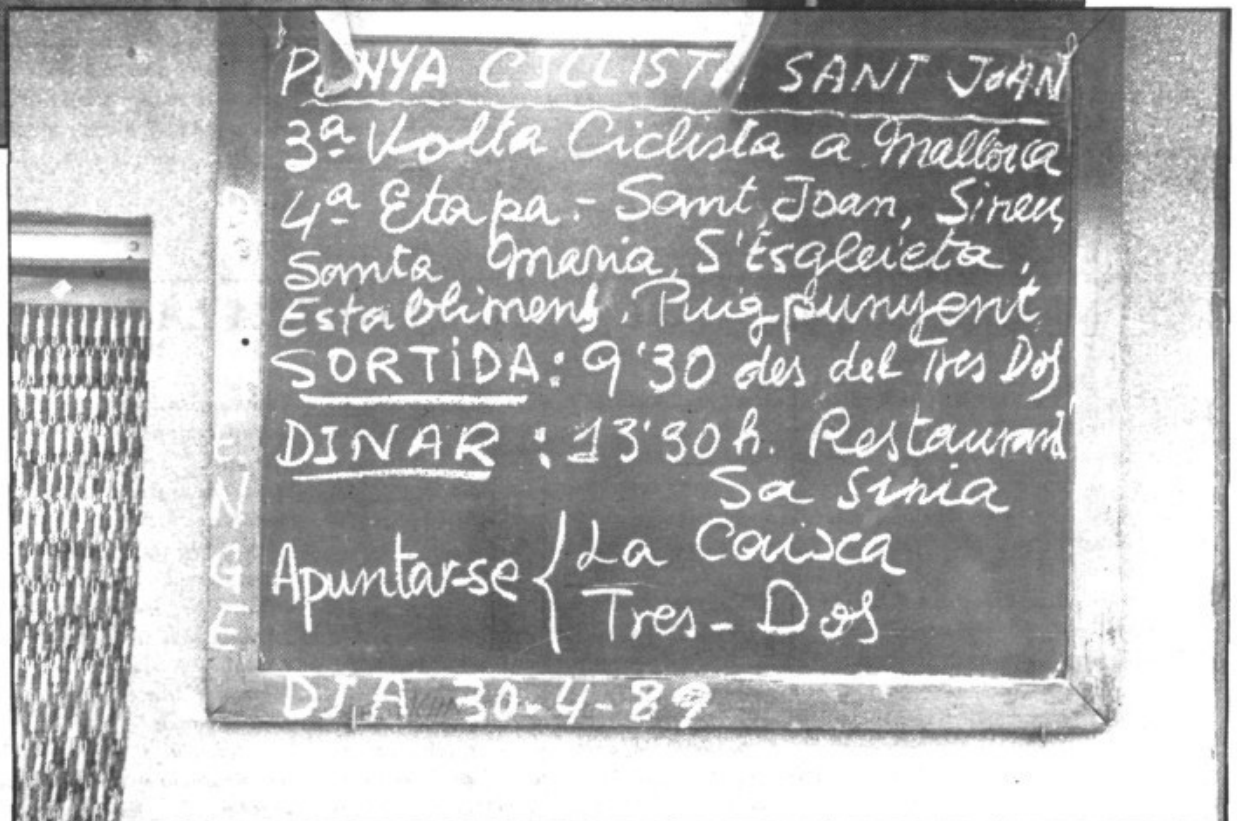 PENYA CICLISTA SANT JOAN
3ª Volta Ciclista a Mallorca
4ª Etapa.- Sant Joan, Sineu,
Santa Maria, S'Esgleieta,
Establiments, Puigpunyent
SORTIDA: 9'30 des del Tres Dos
DINAR: 13'30h. Restaurant
Sa Sinia
Apuntar-se { La Caixa
Tres-Dos
DIA 30-4-89